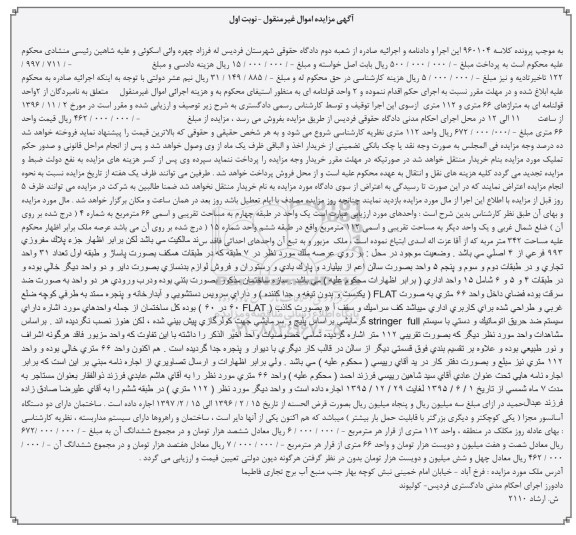 آگهی مزایده اموال غیر منقول - نوبت اول
به موجب پرونده کلاسه ۹۶۰۱۰۴ این اجرا و دادنامه و اجرائیه صادره از شعبه دوم دادگاه حقوقی شهرستان فردیس له فرزاد چهره وائی اسکوئی و علیه شاهین رئیسی منشادی محکوم
علیه محکوم است به پرداخت مبلغ -/۵۰۰/۰۰۰/۰۰۰ ریال بابت اصل خواسته و مبلغ -/۱۵/۰۰۰/۰۰۰ ریال هزینه دادرسی و مبلغ -/۹۹۷/۷۱۱/
۱۲۲ تاخیرتادیه و نیز مبلغ -/۵/۰۰۰/۰۰۰ ریال هزینه کارشناسی در حق محکوم له و مبلغ -/۳۱/۱۴۹/۸۸۵ ریال نیم عشر دولتی با توجه به اینکه اجرائیه صادره به محکوم
علیه ابلاغ شده و در مهلت مقرر نسبت به اجرای حکم اقدام ننموده و ۲ واحد قولنامه ای به منظور استیفای محکوم به و هزینه اجرائی اموال غیرمنقول متعلق به نامبردگان از ۲واحد
قولنامه ای به متراژهای ۶۶ متری و ۱۱۲ متری ازسوی این اجرا توقیف و توسط کارشناس رسمی دادگستری به شرح زیر توصیف و ارزیابی شده و مقرر است در مورخ ۲ / ۱۱ / ۱۳۹۶
از ساعت ۱۱ الی ۱۲ در محل اجرای احکام مدنی دادگاه حقوقی فردیس از طریق مزایده بفروش می رسد ، مزایده از مبلغ -/۴۶۲/۰۰۰/۰۰۰ ریال قیمت واحد
۶۶ متری مبلغ -/۶۷۲/۰۰۰/۰۰۰ ریال واحد ۱۱۲ متری نظریه کارشناسی شروع می شود و به هر شخص حقیقی و حقوقی که بالاترین قیمت را پیشنهاد نماید فروخته خواهد شد
ده درصد وجه مزایده فی المجلس به صورت وجه نقد یا چک بانکی تضمینی از خریدار اخذ و الباقی ظرف یک ماه از وی وصول خواهد شد و پس از انجام مراحل قانونی و صدور حکم
تملیک مورد مزایده بنام خریدار منتقل خواهد شد در صورتیکه در مهلت مقرر خریدار وجه مزایده را پرداخت ننماید سپرده وی پس از کسر هزینه های مزایده به نفع دولت ضبط و
مزایده تجدید می گردد کلیه هزینه های نقل و انتقال به عهده محکوم علیه است و از محل فروش پرداخت خواهد شد . طرفین می توانند ظرف یک هفته از تاریخ مزایده نسبت به نحوه
انجام مزایده اعتراض نمایند که در این صورت تا رسیدگی به اعتراض از سوی دادگاه مورد مزایده به نام خریدار منتقل نخواهد شد ضمنا طالبین به شرکت در مزایده می توانند ظرف ۵
روز قبل از مزایده با اطلاع این اجرا از مال مورد مزایده بازدید نمایند چنانچه روز مزایده مصادف با ایام تعطیل باشد روز بعد در همان ساعت و مکان برگزار خواهد شد . مال مورد مزایده
و بهای آن طبق نظر کارشناس بدین شرح است : واحدهای مورد ارزیابی عبارت است یک واحد در طبقه چهارم به مساحت تقریبی و اسمی ۶۶ مترمربع به شماره ۴ ( درج شده بر روی
آن ) ضلع شمال غربی و یک واحد دیگر به مساحت تقریبی و اسمی ۱۱۲ مترمربع واقع در طبقه ششم واحد شماره ۱۵ ( درج شده بر روی آن می باشد عرصه ملک برابر اظهار محکوم
علیه مساحت ۳۴۲ متر مربع که از آقا عزت اله اسدی ابتیاع نموده است . ملک مزبور و به تبع آن واحدهای احداثی فاقد سند مالکیت می باشد لکن برابر اظهار جزء پلاک مفروزی
۹۹۳ فرعی از ۴ اصلی می باشد . وضعیت موجود در محل : بر روی عرصه ملک مورد نظر در ۷ طبقه که در طبقات همکف بصورت پاساژ و طبقه اول تعداد ۳۱ واحد
تجاری و در طبقات دوم و سوم و پنجم ۵ واحد بصورت سالن اعم از بیلیارد و پارک بادی و رستوران و فروش لوازم بدنسازی بصورت دایر و دو واحد دیگر خالی بوده و
در طبقات ۴ و ۵ و ۶ شامل ۱۵ واحد اداری ( برابر اظهارات محکوم علیه ) می باشد . سازه ساختمان مذکور بصورت بتنی بوده ودرب ورودی هر دو واحد به صورت ضد
سرقت بوده فضای داخل واحد ۶۶ متری به صورت FLAT ( یکدست و بدون تیغه و جدا کننده ) و دارای سرویس دستشویی و آبدارخانه و پنجره ممتد به طرفی کوچه ضلع
غربی و طراحی شده برای کاربری اداری میباشد کف سرامیک و سقف بصورت کناف ( FLAT ۶۰ در ۶۰ ) بوده کل ساختمان از جمله واحدهای مورد اشاره دارای
سیستم ضد حریق اتوماتیک و دستی با سیستم stringer full گرمایشی بر اساس پکیج و سرمایشی جهت کولر گازی پیش بینی شده ، لکن هنوز نصب نگردیده اند . براساس
مشاهدات واحد مورد نظر دیگر که بصورت تقریبی ۱۱۲ متر اشاره گردیده تمامی خصوصیات واحد اخیر الذکر را داشته با این تفاوت که واحد مزبور فاقد هرگونه اشراف
و نور طبیعی بوده و علاوه بر تقسیم بندی فوق قسمتی دیگر از سالن در قالب کار دیگری با دیوار و پنجره جدا گردیده است . هم اکنون واحد ۶۶ متری خالی بوده و واحد
۱۱۲ متری نیز مبلغ و بصورت دفتر کار در ید آقای رییسی ( محکوم علیه ) می باشد . ولی برابر اظهارات و ارسال تصاویری از اجاره نامه مبنی بر این است که برابر
اجاره نامه هایی تحت عنوان عادی آقای سید شاهین رییسی فرزند احمد ( محکم علیه ) واحد ۶۶ متری مورد نظر را به آقای هاشم عابدی فرزند ذوالفقار بعنوان مستاجر به
مدت ۷ ماه شمسی از تاریخ ۱ / ۶ / ۱۳۹۵ لغایت ۲۹ / ۱۲ / ۱۳۹۵ اجاره داده است و واحد دیگر مورد نظر ( ۱۱۲ متری ) در طبقه ششم را به آقای علیرضا صادق زاده
فرزند عبدالحمید در ازای مبلغ سه میلیون ریال و پنجاه میلیون ریال بصورت قرض الحسنه از تاریخ ۱۵ / ۲ / ۱۳۹۶ الی ۱۵ / ۲ / ۱۳۹۷ اجاره داده است . ساختمان دارای دو دستگاه
آسانسور مجزا ( یکی کوچکتر و دیگری بزرگتر با قابلیت حمل بار بیشتر ) میباشد که هم اکنون یکی از آنها دایر است ، ساختمان و راهروها دارای سیستم مداربسته ، نظریه کارشناسی
: بهای عادله روز مکلک در منطقه ، واحد ۱۱۲ متری از قرار هر مترمربع -/۶/۰۰۰/۰۰۰ ریال معادل ششصد هزار تومان و در مجموع ششدانگ آن به مبلغ -/۶۷۲/۰۰۰/۰۰۰
ریال معادل شصت و هفت میلیون و دویست هزار تومان و واحد ۶۶ متری از قرار هر مترمربع -/۷/۰۰۰/۰۰۰ ریال معادل هفتصد هزار تومان و در مجموع ششدانگ آن -/۰۰۰/
۴۶۲/۰۰۰ ریال معادل چهل و شش میلیون و دویست هزار تومان بدون در نظر گرفتن هرگونه دیون دولتی تعیین قیمت و ارزیابی می گردد .
آدرس ملک مورد مزایده : فرخ آباد - خیابان امام خمینی نبش کوچه بهار جنب منبع آب برج تجاری فاطیما
دادورز اجرای احکام مدنی دادگستری فردیس- کولیوند
ش. ارشاد ۲۱۱۰